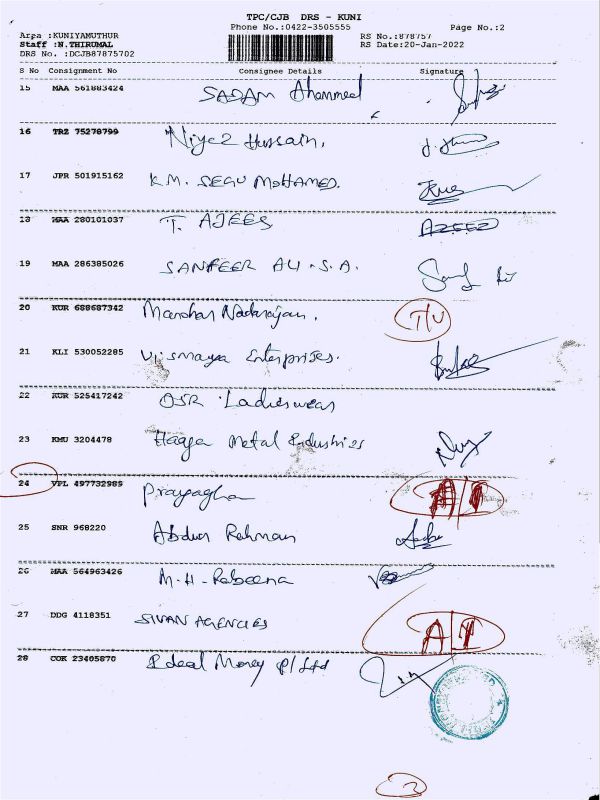 TPC/CJB DRS - KUNI
Phone No.:0422-3505555 Page No.:2
Arpa :KUNIYAMUTHUR RS No.:878757
Staff :N.THIRUMAL RS Date:20-Jan-2022
DRS No. :DCJB87875702
S No Consignment No Consignee Details Signature
15 MAA 561883424 SADAM Ahammed
16 TRZ 75278799 Niyez Hussain,
17 JPR 501915162 K.M. SEGU MOHAMED.
18 MAA 280101037 T. AJEES AZEEZ
19 MAA 286385026 SANFEER ALI .S.A.
20 KUR 688687342 Manohar Nadarajan,
21 KLI 530052285 Vismaya Enterprises.
22 KUR 525417242 OSR Ladieswear
23 KMU 3204478 Haqqa Metal Industries
24 VPL 497732989 Prayagha
25 SNR 968220 Abdur Rehman
26 MAA 564963426 M.H-Rabeena
27 DDG 4118351 SIVAN AGENCIES
28 COK 23405870 Ideal Money P/Ltd